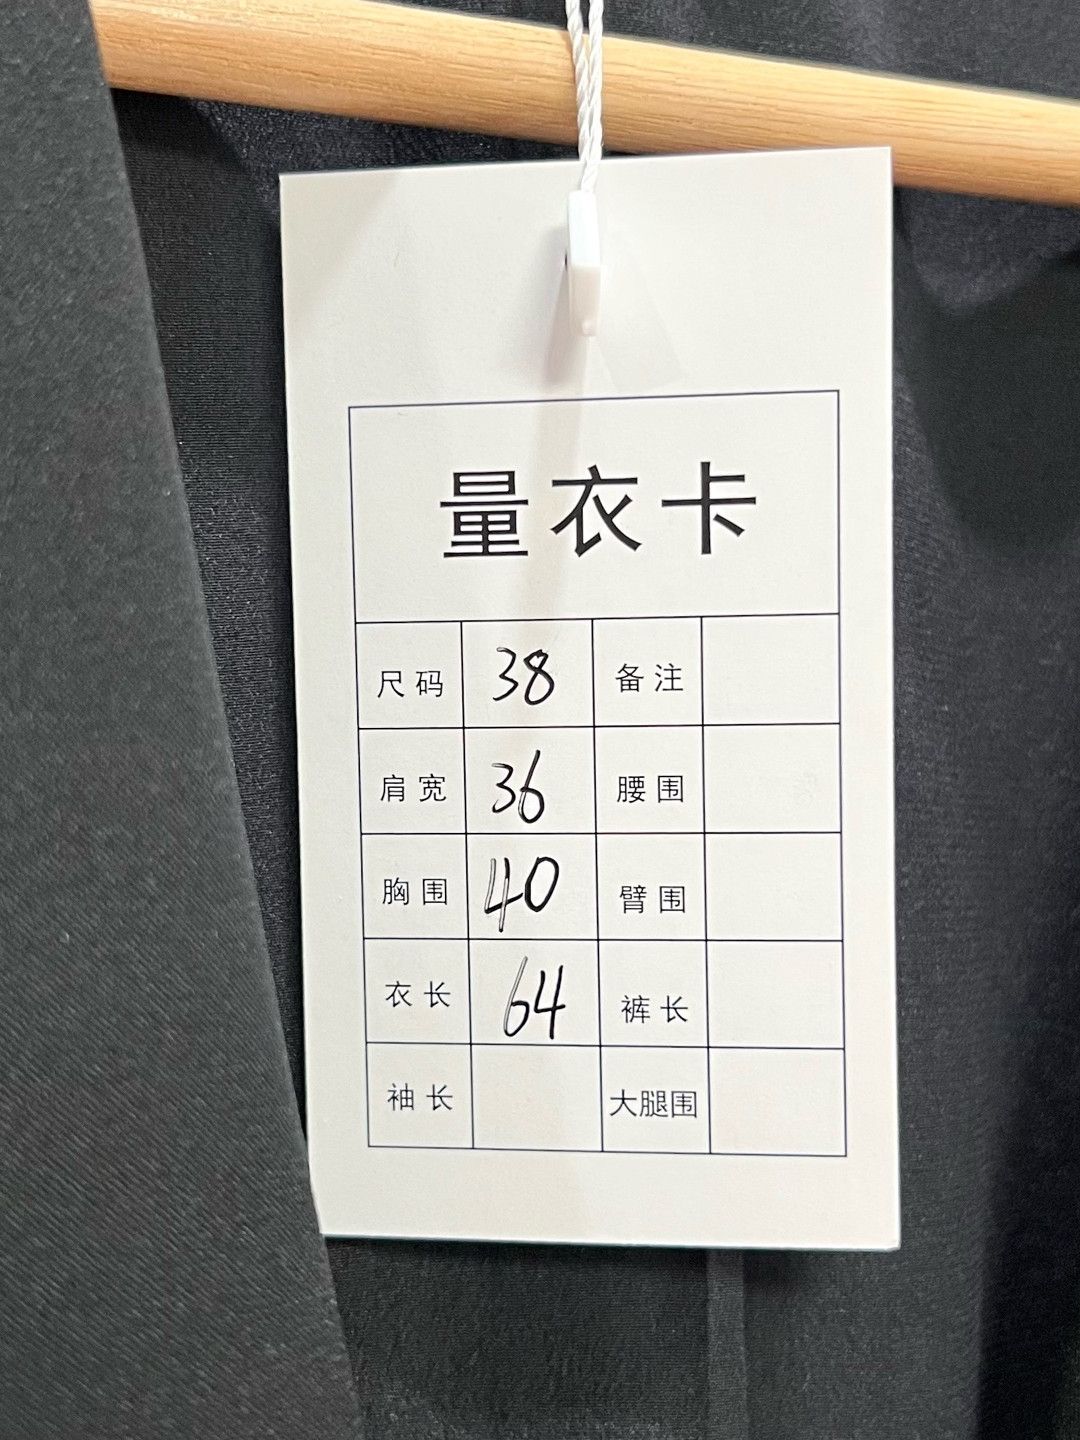 量衣卡
尺码 38 备注
肩宽 36 腰围
胸围 40 臂围
衣长 64 裤长
袖长 大腿围